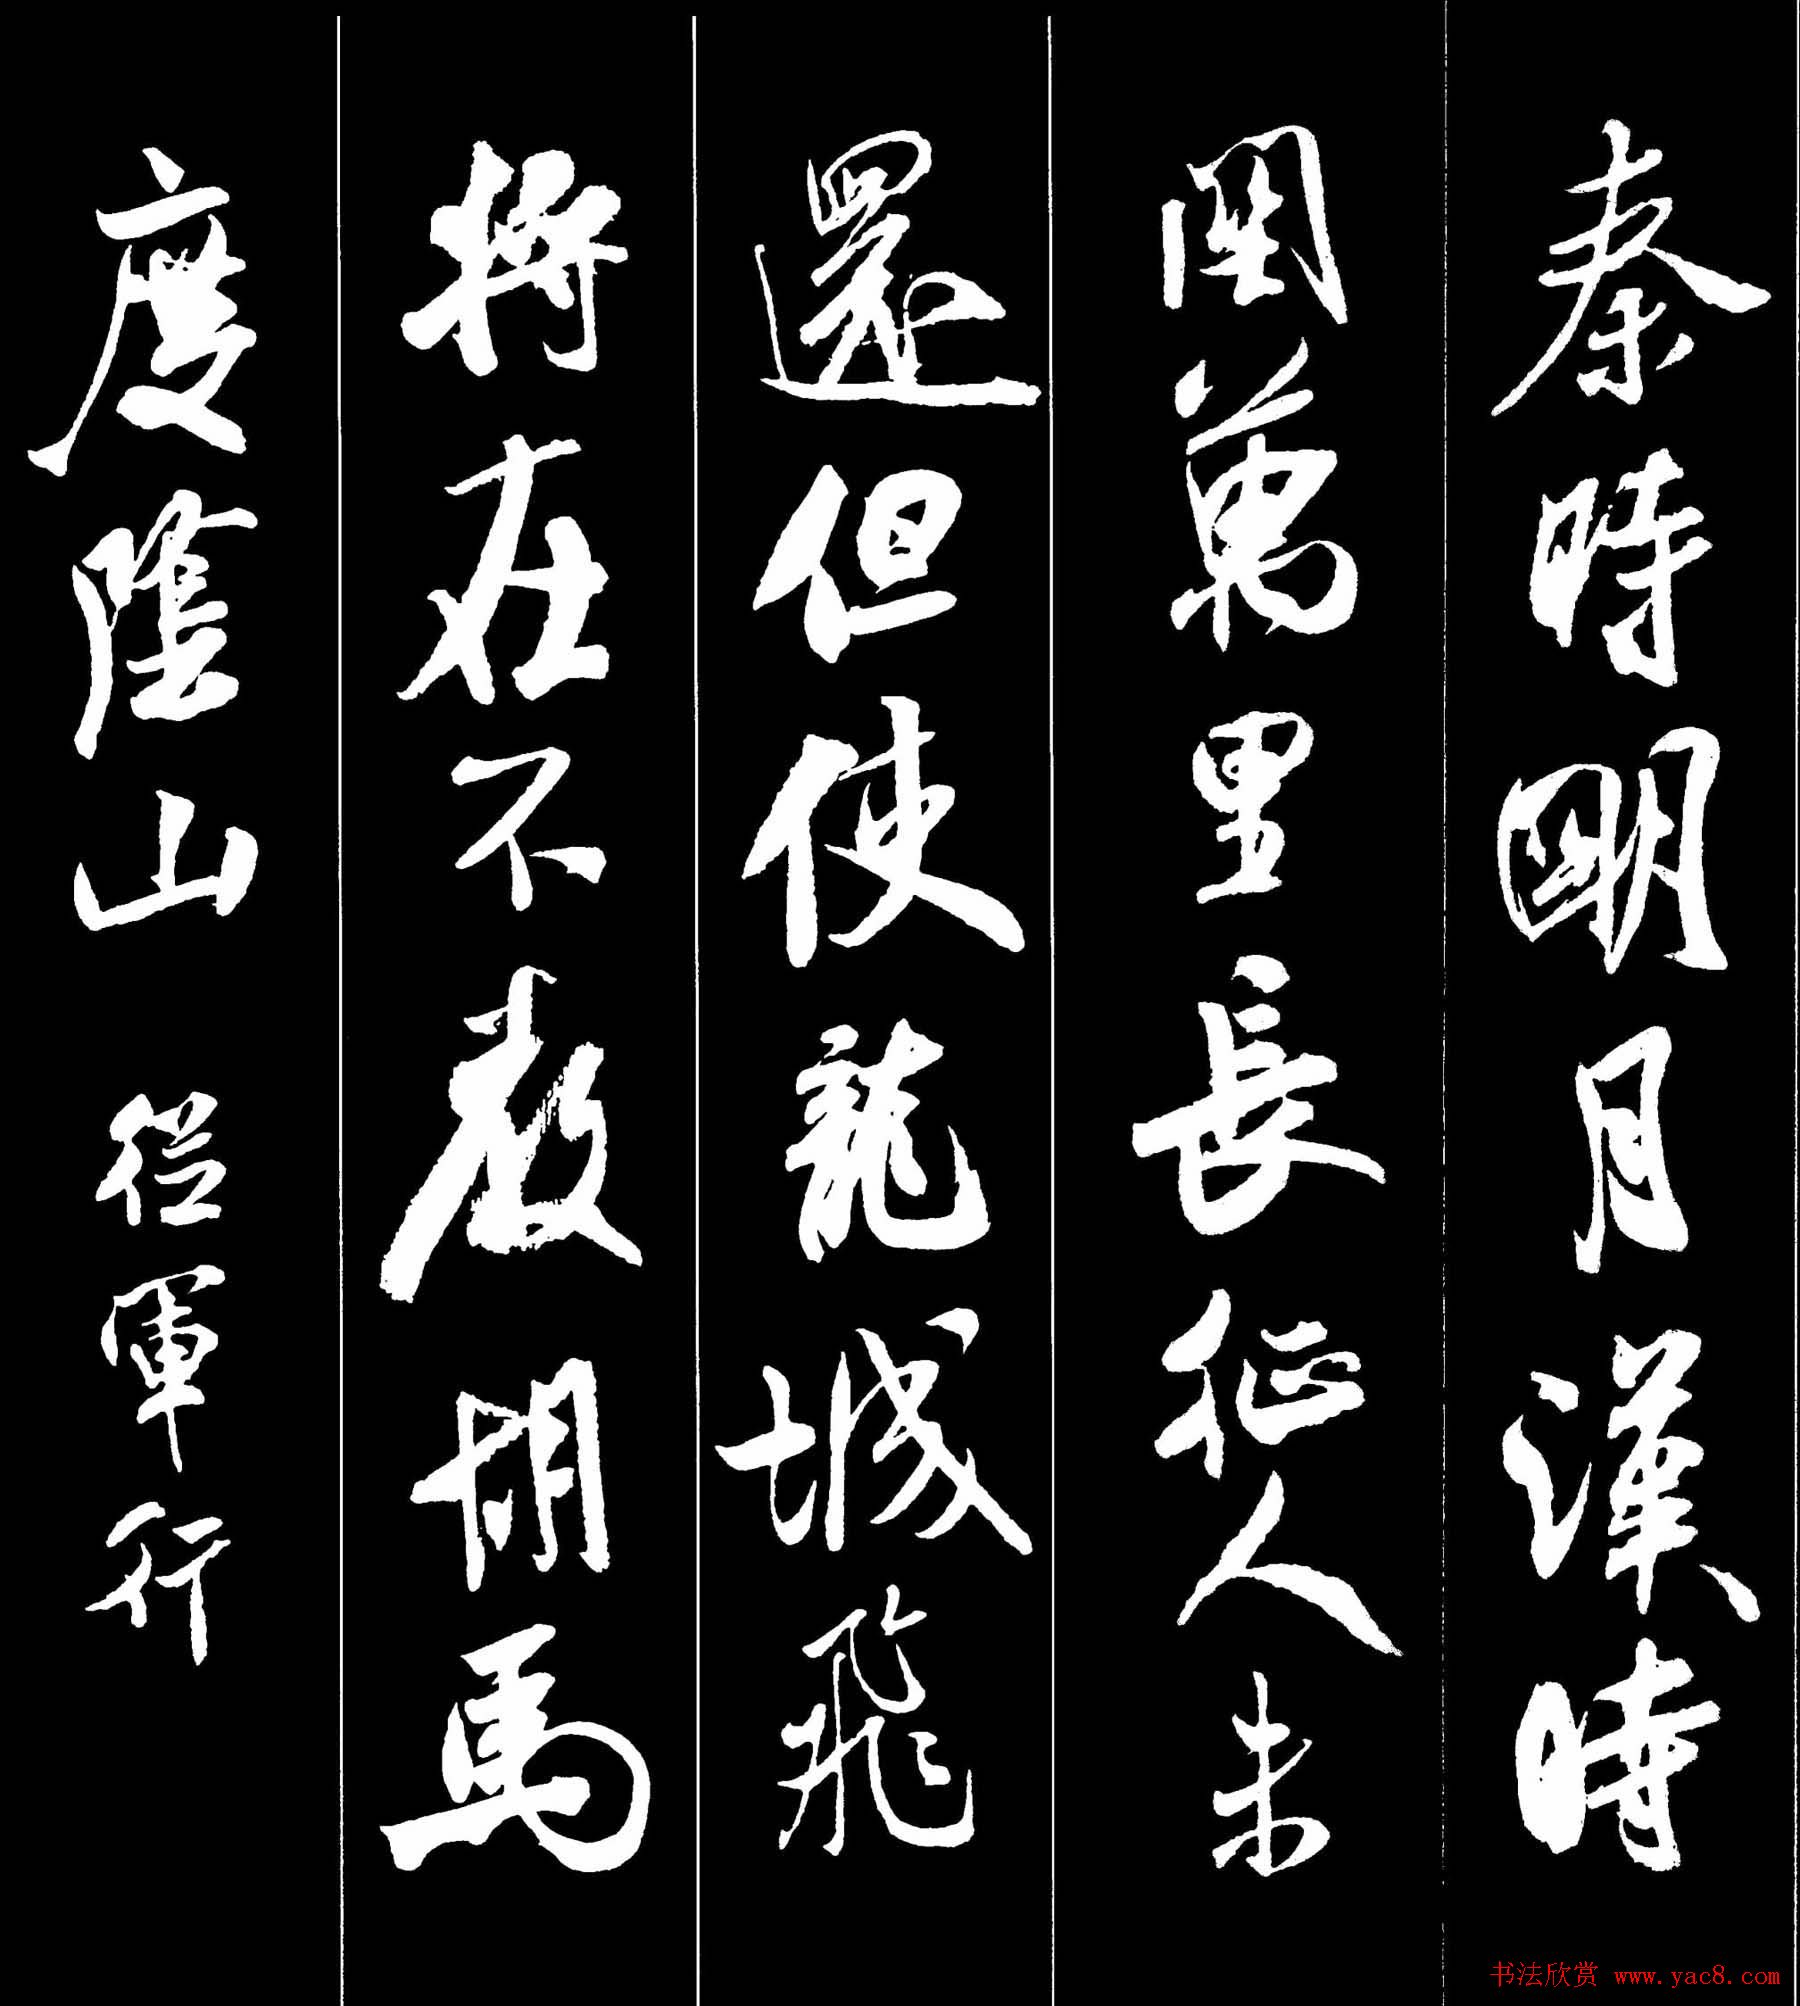 秦時明月漢時
關萬里長征人未
還但使龍城飛
將在不教胡馬
度陰山 從軍行
书法欣赏 www.yac8.com